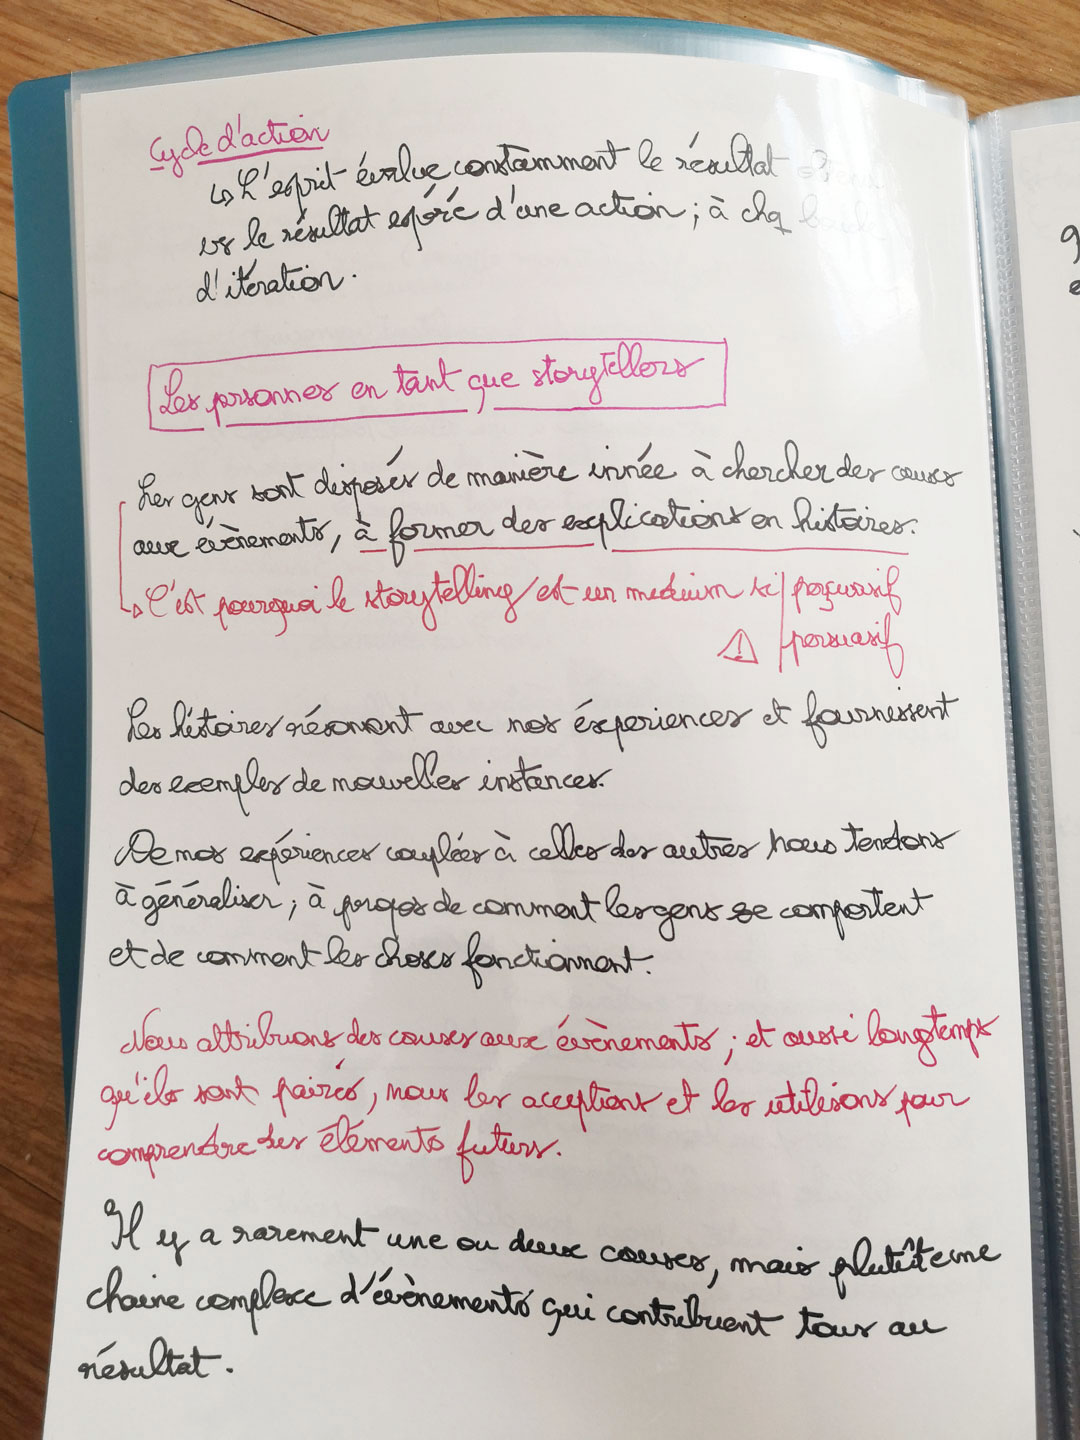 Cycle d'action
↳ L'esprit évalue constamment le résultat
vs le résultat espéré d'une action ; à chq
d'itération.
Les personnes en tant que storytellers
Les gens sont disposés de manière innée à chercher des causes
aux évènements, à former des explications en histoires.
↳ C'est pourquoi le storytelling est un medium si perçurasif
⚠ persuasif
Les histoires résonnent avec nos éxperiences et fournissent
des exemples de nouvelles instances.
De nos expériences couplées à celles des autres nous tendons
à généraliser ; à propos de comment les gens se comportent
et de comment les choses fonctionnent.
Nous attribuons des causes aux évènements ; et aussi longtemps
qu'ils sont pairés, nous les acceptions et les utilisons pour
comprendre les éléments futurs.
Il y a rarement une ou deux causes, mais plutôt une
chaine complexe d'évènements qui contribuent tous au
résultat.